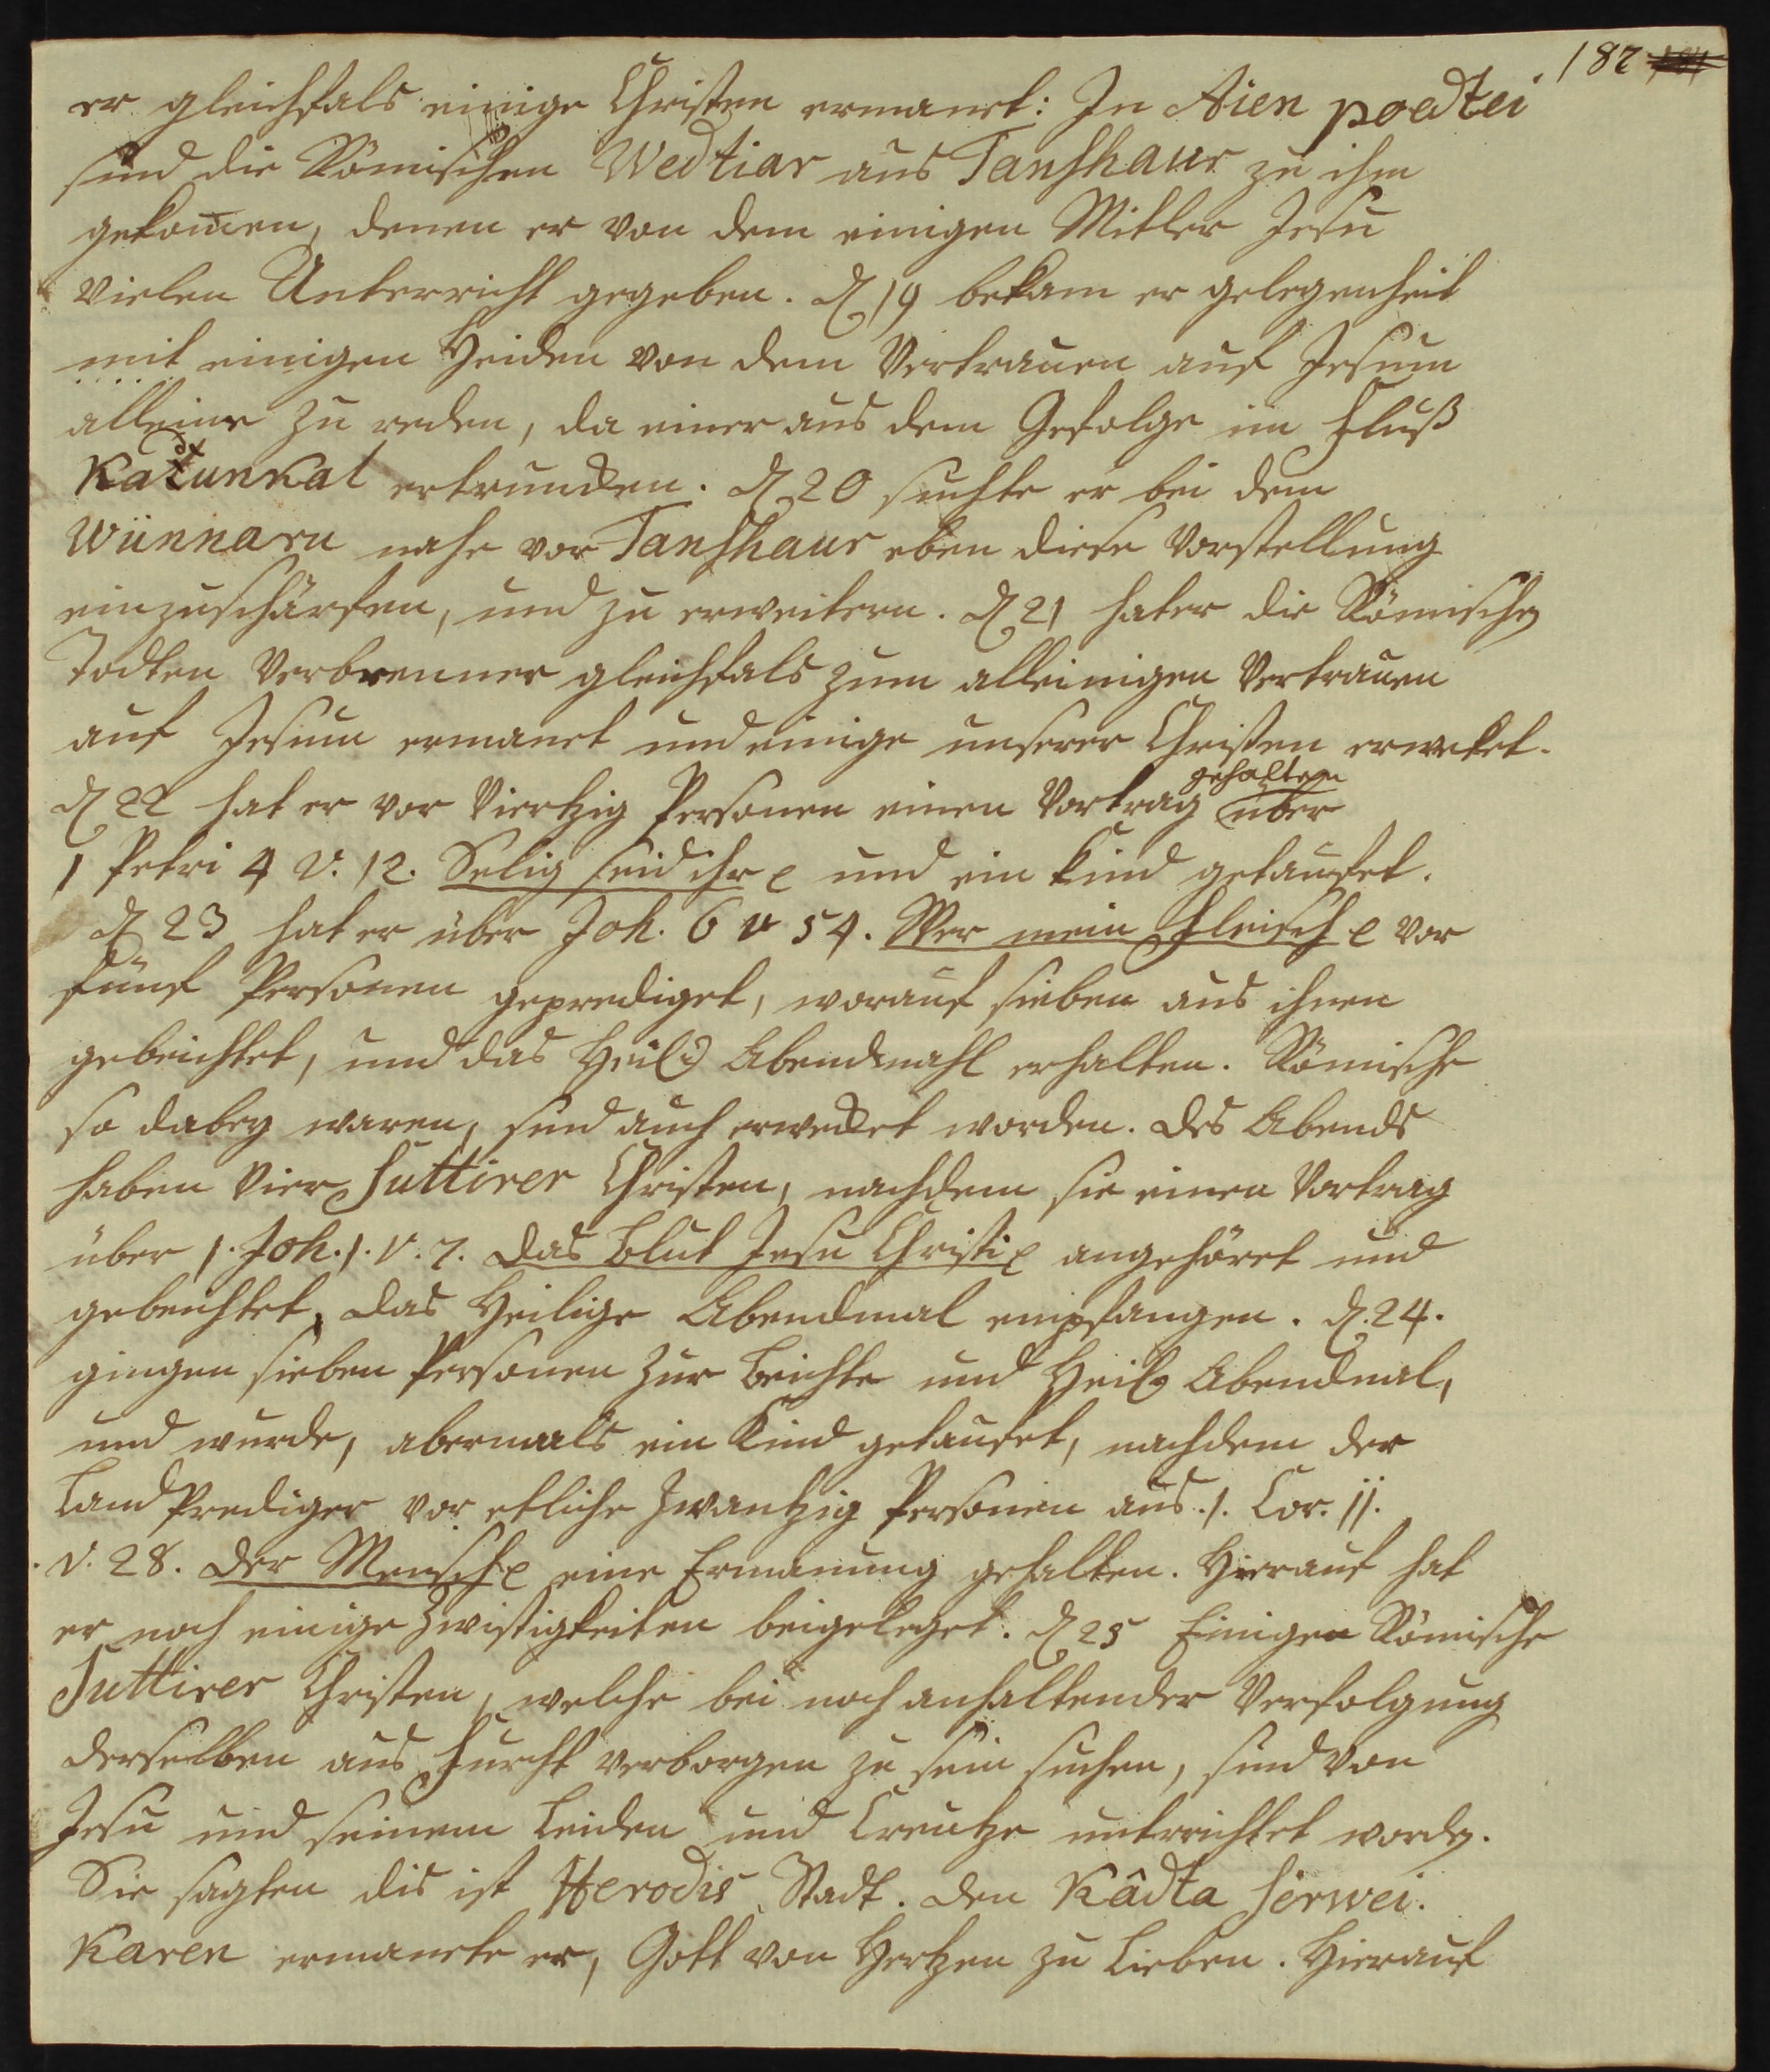 182
er gleichfals einige Christen ermanet: In Aien poedtei
sind die Römischen Wedtiar aus Tanshaur zu ihm
gekom̄en, denen er von dem einigen Mitler Jesu
vielen Unterricht gegeben. d 19 bekam er gelegenheit
mit einigen Heiden von dem Vertrauen auf Jesum
alleine zu reden, da einer aus dem Gefolge im Fluß
Katunkal ertruncken. d 20 suchte er bei dem
Wünnaru nahe vor Tanshaur eben diese Vorstellung
einzuschärfen, und zu erweitern. d 21 hat er die Römischen
Todten Verbrenner gleichfals zum alleinigen Vertrauen
auf Jesum ermanet und einige unserer Christen erweket.
gehalten
d 22 hat er vor Viertzig Personen einen Vortrag über
1 Petri 4 V. 12. Selig seid ihr p und ein Kind getaufet.
d 23 hat er über Joh. 6 v 54. Wer mein Fleisch p vor
fünf Personen geprediget, worauf sieben aus ihnen
gebeichtet, und das Heil. Abendmahl erhalten. Römische
so dabey waren, sind auch erwecket worden. Des Abends
haben Vier Suttirer Christen, nachdem sie einen Vortrag
über 1. Joh. 1. V. 7. Das Blut Jesu Christi p angehöret und
gebeichtet, das Heilige Abendmal empfangen. d. 24.
gingen sieben Personen zur Beichte und Heil. Abendmal,
und wurde, abermals ein Kind getaufet, nachdem der
Land Prediger vor etliche Zwantzig Personen aus 1. Cor. 11.
V. 28. Der Mensch p eine Ermanung gehalten. Hierauf hat
er noch einige Zwistigkeiten beigeleget. d 25 Einigen Römische
Suttirer Christen, welche bei noch anhaltender Verfolgung
derselben aus Furcht verborgen zu sein suchen, sind von
Jesu und seinem Leiden und Creutze unterrichtet worden.
Sie sagten dis ist Herodis Stadt. Den Kâdta Serwei.
Karen ermanete er, Gott von Hertzen zu Lieben. Hierauf